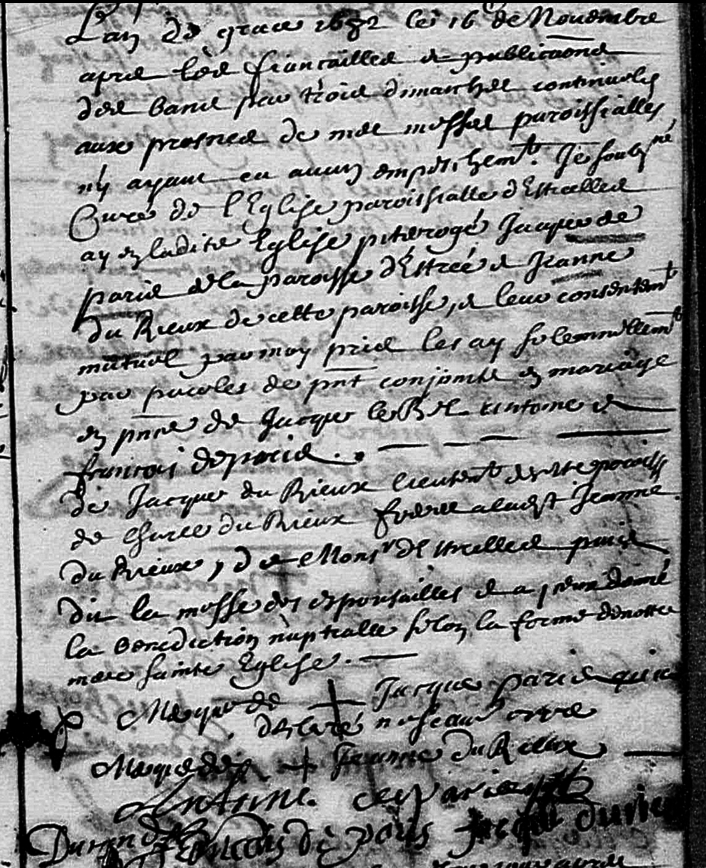 L'an de grace 1682 le 16e de Novembre
apres les fiancailles et publications
des bans par trois dimanches continuels
aux prosnes de mes messes paroissialles
n'y ayant eu aucun empeschemt. Je soubsné
Curé de l'Eglise paroissialle d'Estrelles
ay en ladite Eglise interogé Jacque de
paris de la paroisse d'Estrée et Jeanne
du Rieux de cette paroisse, et leur consentemt
mutuel par moy pris les ay solemnellemt
par paroles de pnt conjoints en mariage
en pnce de Jacque le Bel Antoine et
francois de paris.
de Jacque du Rieux lieutent de cette paroisse
de du Rieux frere a ladt Jeanne
du Rieux, et de Monsr d'Estrelles puis
dit la messe des espousailles et a iceux donné
la benediction nuptialle selon la forme de nostre
mere sainte Eglise.
Marque de + Jacque paris qui a
declaré ne scavoir
Marque de + Jeanne du Rieux
Antoine de Paris
Francois de paris Jacque durieu